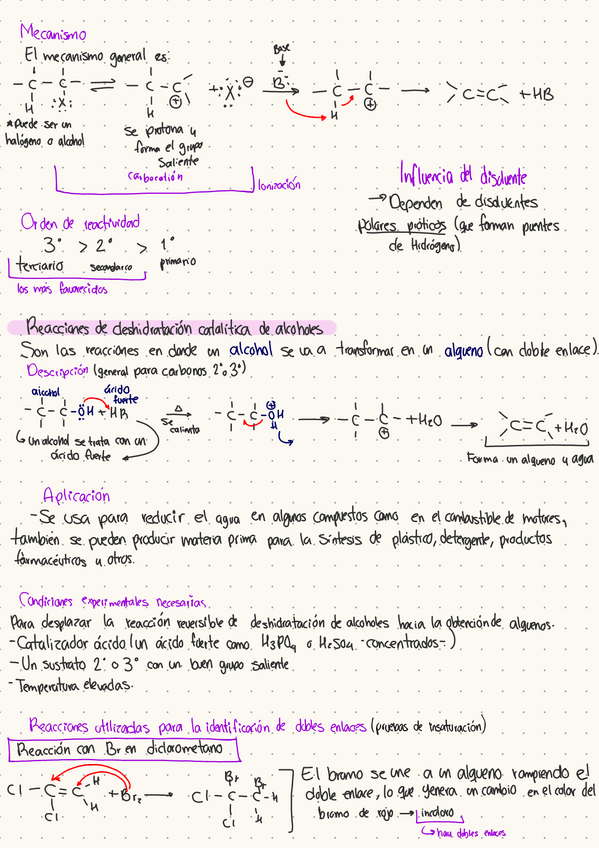 Mecanismo
El mecanismo general es:
Base
-C-C- ⇌ -C-C⊕ + :X:⊖ B:⁻ → -C-C⊕- → >C=C< + HB
H :X: H H
*Puede ser un
halógeno o alcohol
se protona y
forma el grupo
saliente
carbocatión
Ionización
Influencia del disolvente
→ Dependen de disolventes
polares próticos (que forman puentes
de Hidrógeno).
Orden de reactividad
3° > 2° > 1°
terciario secundario primario
los más favorecidos
Reacciones de deshidratación catalítica de alcoholes
Son las reacciones en donde un alcohol se va a transformar en un alqueno (con doble enlace).
Descripción (general para carbonos 2° o 3°)
alcohol ácido fuerte
-C-C-ÖH + HA Δ → -C-C-OH ⊕ H → -C-C- ⊕ + H2O → >C=C< + H2O
se calienta
↳ Un alcohol se trata con un
ácido fuerte
Forma un alqueno y agua
Aplicación
-Se usa para reducir el agua en algunos compuestos como en el combustible de motores,
también se pueden producir materia prima para la síntesis de plástico, detergente, productos
farmacéuticos u otros.
Condiciones experimentales necesarias.
Para desplazar la reacción reversible de deshidratación de alcoholes hacia la obtención de alquenos.
-Catalizador ácido (un ácido fuerte como H3PO4 o H2SO4 -concentrados-)
-Un sustrato 2° o 3° con un buen grupo saliente
-Temperatura elevadas.
Reacciones utilizadas para la identificación de dobles enlaces (pruebas de insaturación)
Reacción con Br en diclorometano
Cl-C=C-H + Br2 → Cl-C-C-H
Cl H Br Br Cl H
El bromo se une a un alqueno rompiendo el
doble enlace, lo que genera un cambio en el color del
bromo de rojo → incoloro
↳ hay dobles enlaces